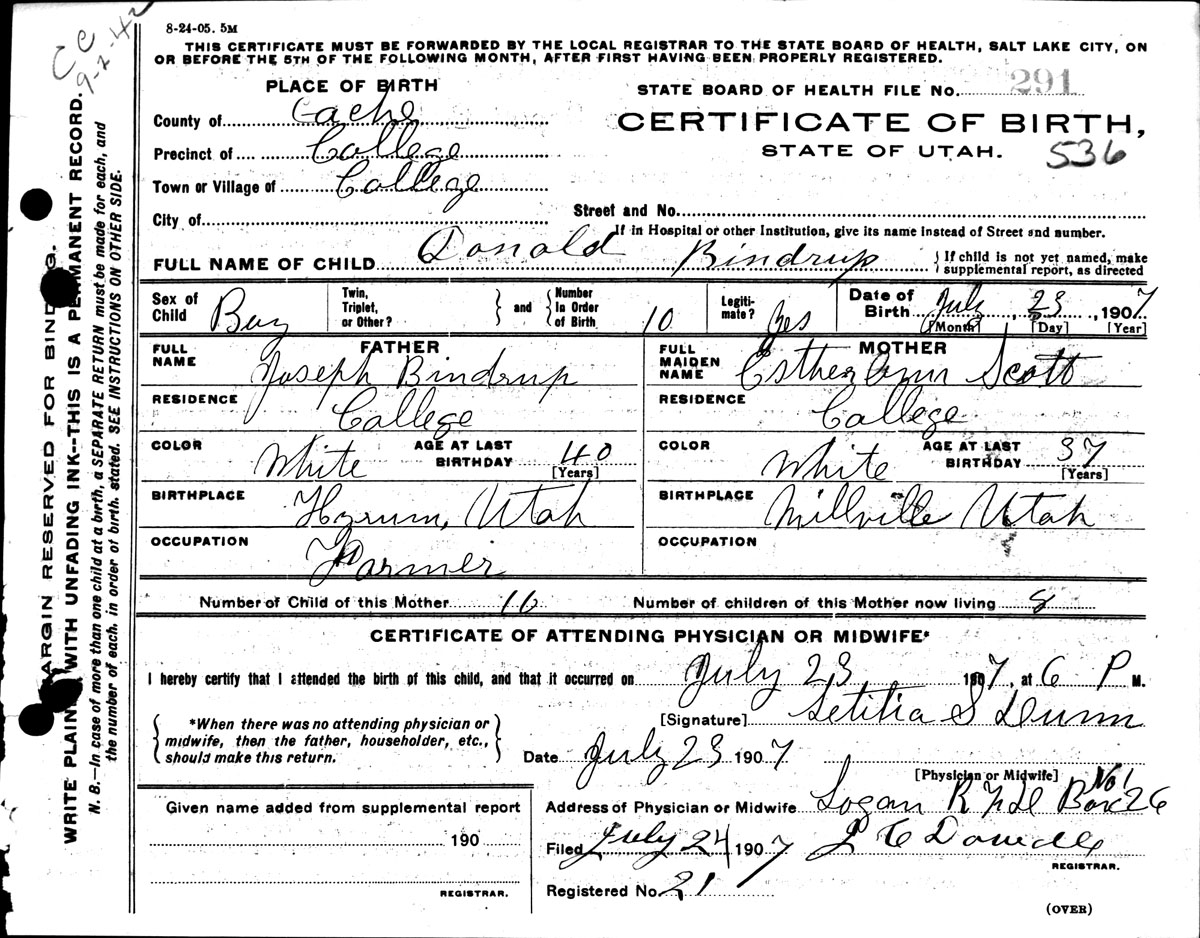 CC
9-2-42
8-24-05. 5M
THIS CERTIFICATE MUST BE FORWARDED BY THE LOCAL REGISTRAR TO THE STATE BOARD OF HEALTH, SALT LAKE CITY, ON
OR BEFORE THE 5TH OF THE FOLLOWING MONTH, AFTER FIRST HAVING BEEN PROPERLY REGISTERED.
PLACE OF BIRTH
STATE BOARD OF HEALTH FILE No. 291
County of Cache
CERTIFICATE OF BIRTH,
Precinct of College
STATE OF UTAH. 536
Town or Village of College
City of
Street and No.
If in Hospital or other Institution, give its name instead of Street and number.
FULL NAME OF CHILD Donald Bindrup
If child is not yet named, make
supplemental report, as directed
Sex of Child Boy
Twin, Triplet, or Other?
and
Number In Order of Birth 10
Legiti-mate? yes
Date of Birth July 23, 1907
[Month] [Day] [Year]
FATHER
FULL NAME Joseph Bindrup
RESIDENCE College
COLOR White AGE AT LAST BIRTHDAY 40 [Years]
BIRTHPLACE Hyrum, Utah
OCCUPATION Farmer
MOTHER
FULL MAIDEN NAME Esther Ann Scott
RESIDENCE College
COLOR White AGE AT LAST BIRTHDAY 37 [Years]
BIRTHPLACE Millville Utah
OCCUPATION
Number of Child of this Mother 10 Number of children of this Mother now living 8
CERTIFICATE OF ATTENDING PHYSICIAN OR MIDWIFE*
I hereby certify that I attended the birth of this child, and that it occurred on July 23 1907, at 6 P M.
*When there was no attending physician or
midwife, then the father, householder, etc.,
should make this return.
[Signature] Letitia S Dunn
Date July 23 1907
[Physician or Midwife]
Given name added from supplemental report
190
REGISTRAR.
Address of Physician or Midwife Logan R F D No 1 Box 26
Filed July 24 1907
REGISTRAR.
Registered No. 21
(OVER)
MARGIN RESERVED FOR BINDING.
WRITE PLAINLY WITH UNFADING INK--THIS IS A PERMANENT RECORD.
N. B.—In case of more than one child at a birth, a SEPARATE RETURN must be made for each, and
the number of each, in order of birth, stated. SEE INSTRUCTIONS ON OTHER SIDE.